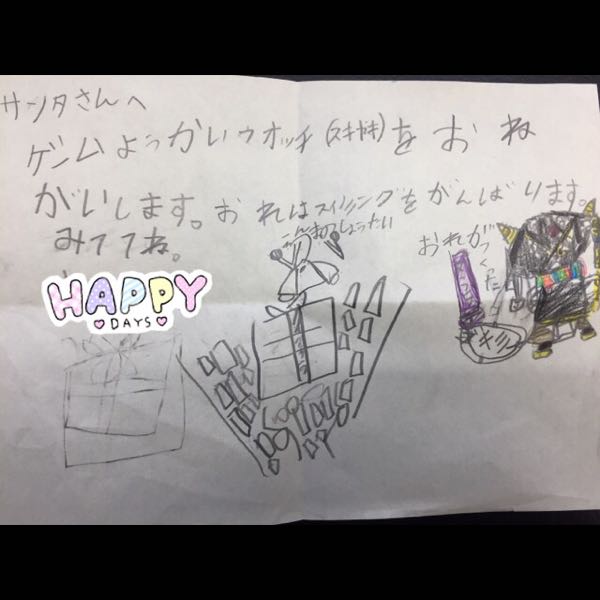 サンタさんへ
ゲームようかいウオッチ(スキヤキ)をおね
がいします。おれはスイミングをがんばります。
みててね。
こんまのしょうたい
おれがつくた
キリ
HAPPY
DAYS